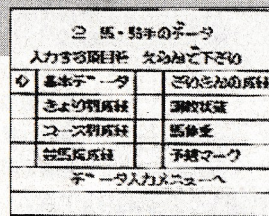 2 馬・騎手のデータ
入力する項目を えらんで下さい
基本データ ざいきんの成績
きょり別成績 調教状態
コース別成績 馬体重
競馬場成績 予想マーク
データ入力メニューへ